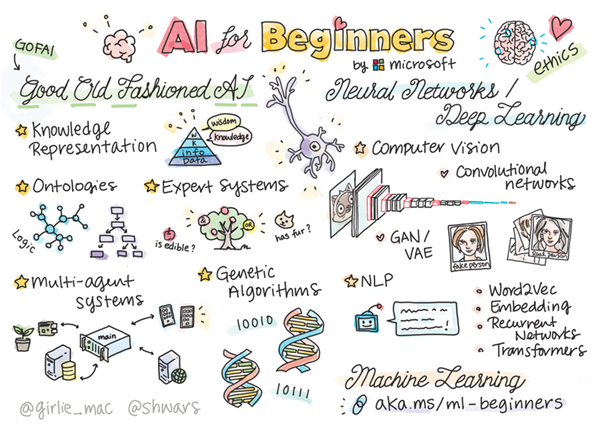 AI for Beginners
by microsoft
GOFAI
ethics
Good Old Fashioned AI
Knowledge
Representation
wisdom
knowledge
info
Data
Ontologies
Logic
Expert Systems
is edible?
&
OR
has fur?
Multi-agent
systems
main
Genetic
Algorithms
10010
10111
Neural Networks /
Deep Learning
Computer Vision
Convolutional
networks
GAN/
VAE
fake person
NLP
Word2Vec
Embedding
Recurrent
Networks
Transformers
Machine Learning
aka.ms/ml-beginners
@girlie_mac @shwars